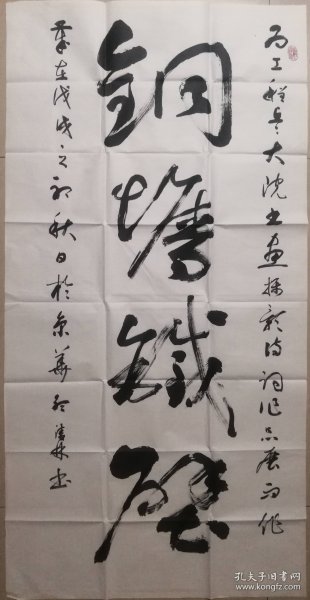 为工程兵大院书画摄影诗词作品展而作
铜墙铁壁
岁在戊戌之初秋日于京华
书
孔夫子旧书网